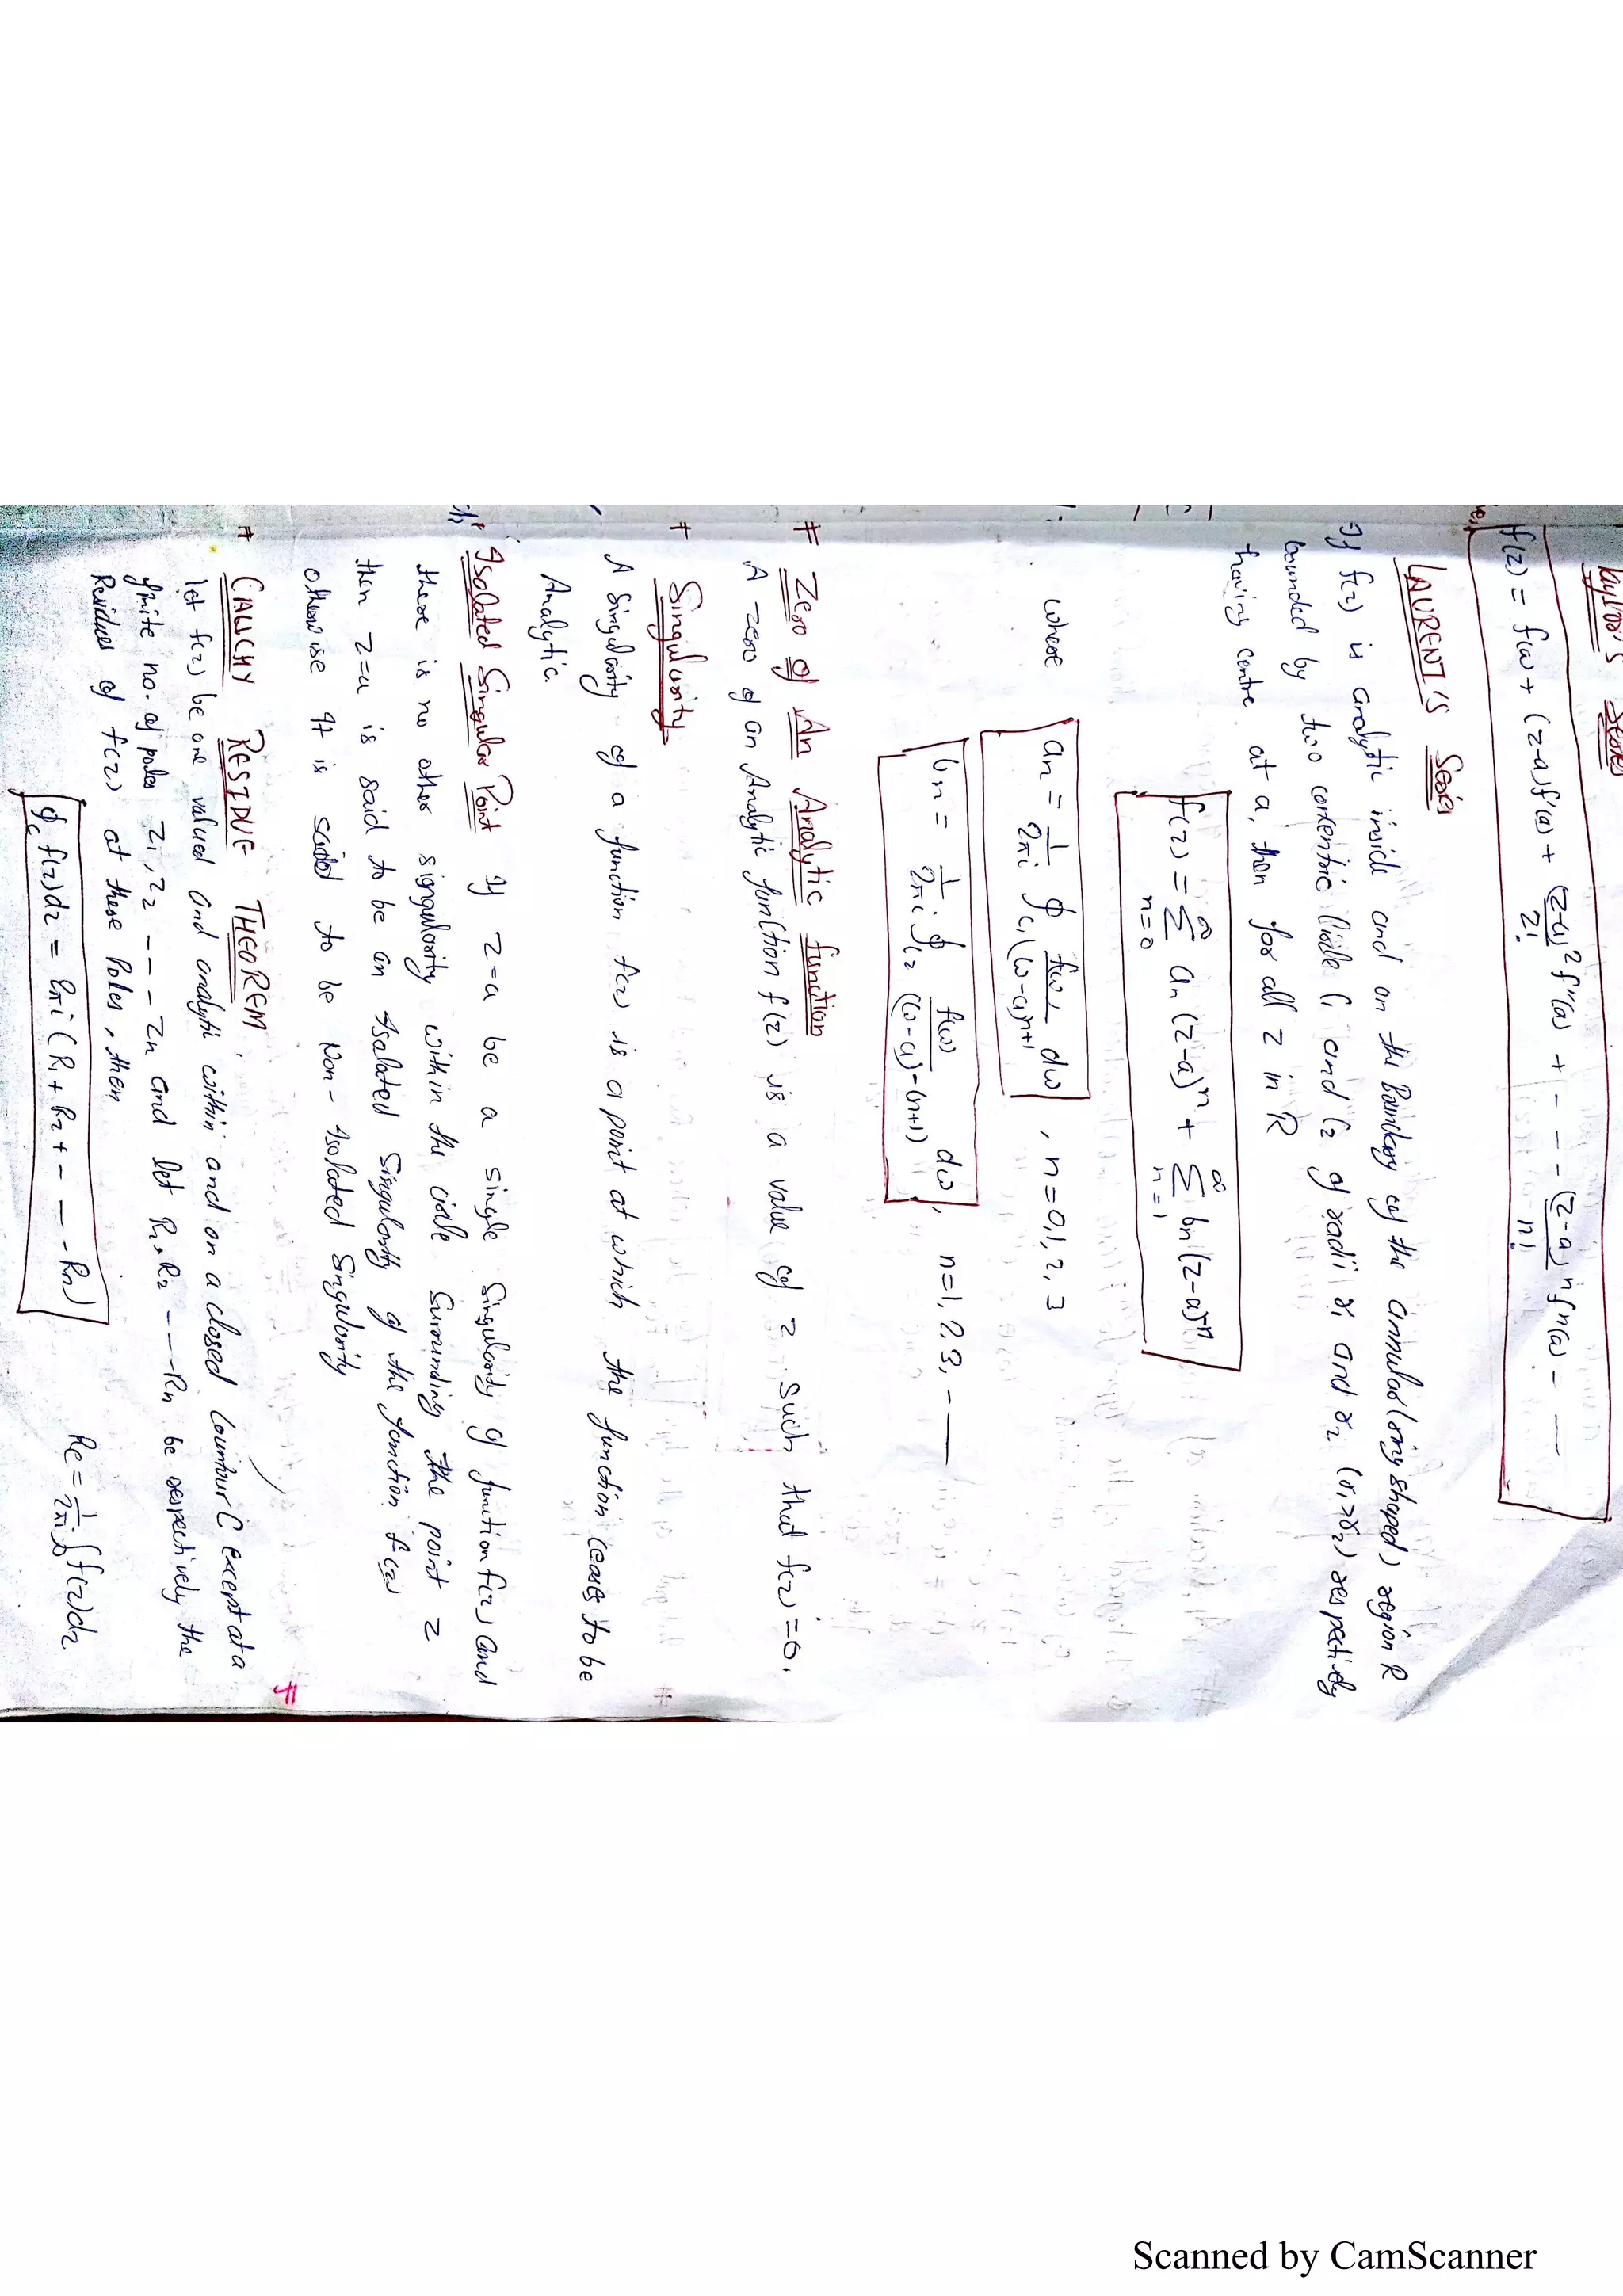 Taylor's Series
f(z) = f(a) + (z-a)f'(a) + (z-a)²/2! f''(a) + - - - (z-a)ⁿ/n! fⁿ(a) - - -
LAURENT'S Series
If f(z) is analytic inside and on the Boundary of the annular (ring shaped) region R
bounded by two concentric circle C1 and C2 of radii r1 and r2 (r1>r2) respectively
having centre at a, then for all z in R
f(z) = ∞ Σ n=0 an (z-a)ⁿ + ∞ Σ n=1 bn (z-a)⁻ⁿ
where an = 1/2πi ∮c1 f(w)/(w-a)ⁿ⁺¹ dw , n=0,1,2,3
bn = 1/2πi . ∮c2 f(w)/(w-a)-(n+1) dw , n=1,2,3, - —
# Zero of An Analytic function
A zero of an Analytic function f(z) is a value of z such that f(z)=0.
# Singularity
A singularity of a function f(z) is a point at which the function ceases to be
Analytic.
Isolated Singular Point If z=a be a single Singularity of function f(z) and
there is no other singularity within the circle Surrounding the point z
then z=a is said to be an Isolated Singularity of the function f(z)
otherwise It is said to be Non-Isolated Singularity
# CAUCHY RESIDUE THEOREM
let f(z) be one valued and analytic within and on a closed Countour C except at a
finite no. of poles z1, z2 - - - zn and let R1, R2 - - - Rn be respectively the
Residues of f(z) at these Poles, then
∮c f(z)dz = 2πi (R1 + R2 + - - - Rn)
Re = 1/2πi ∫ f(z)dz
#
Scanned by CamScanner